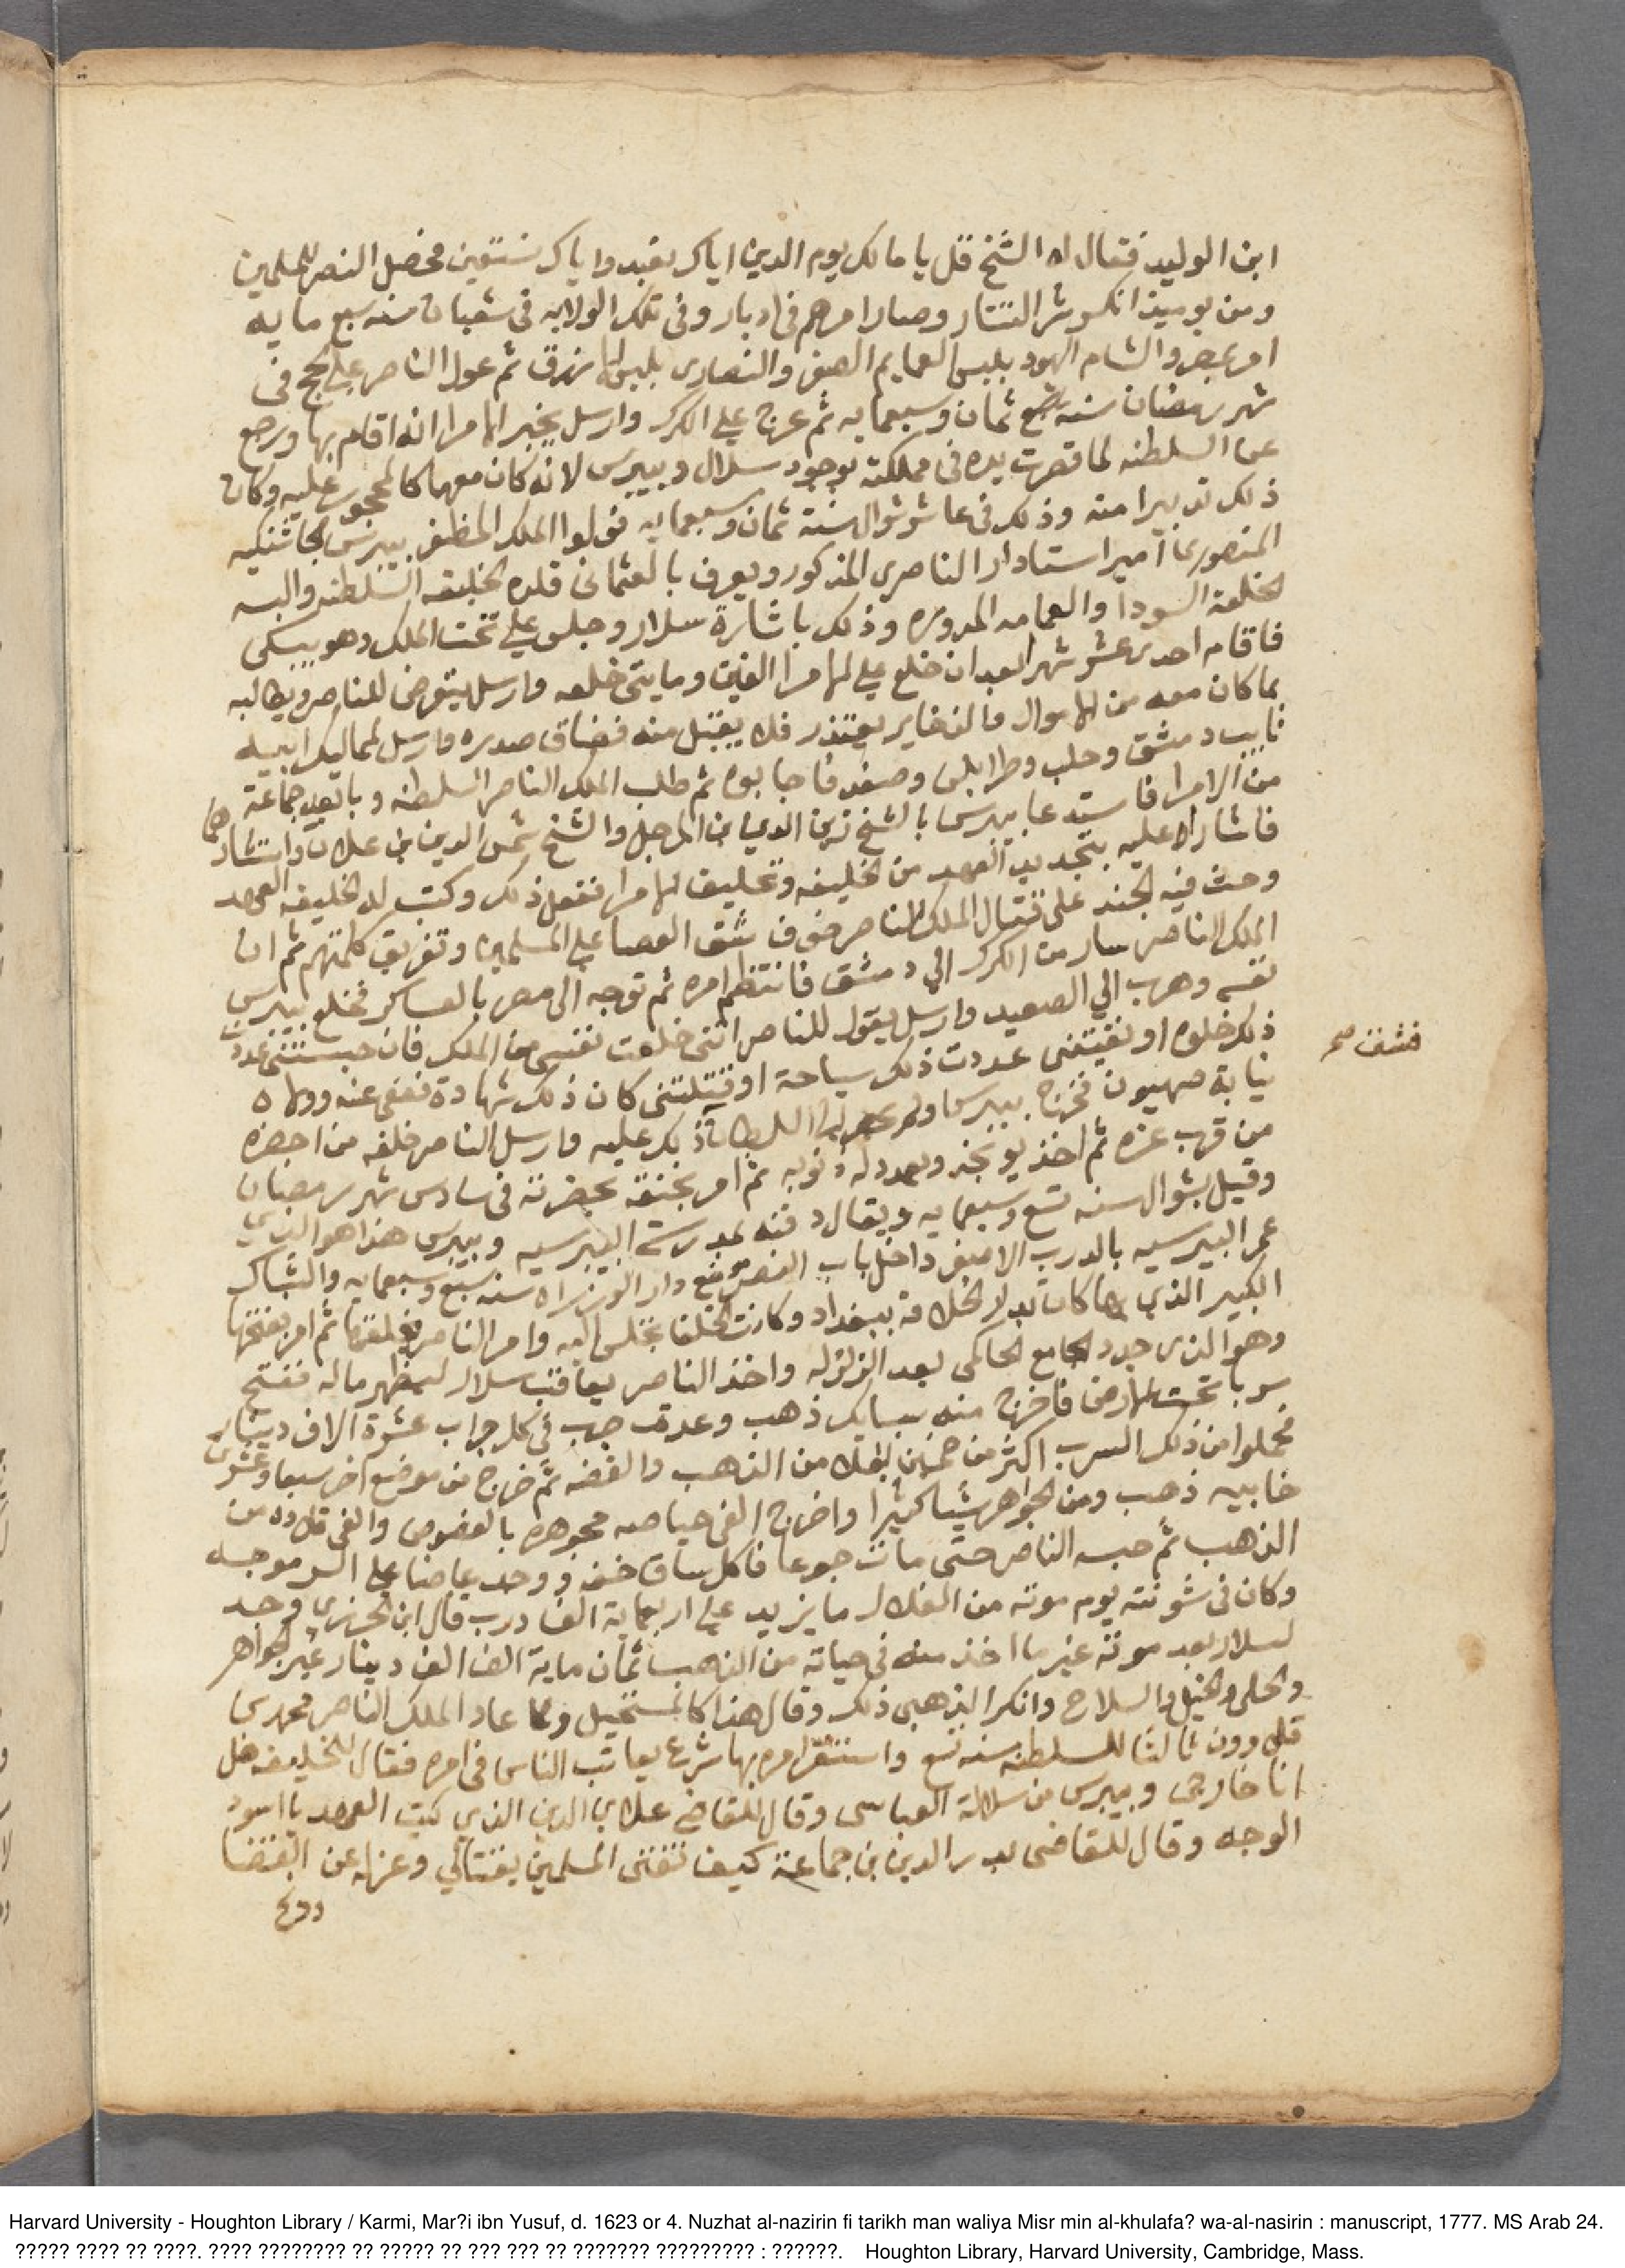 ابن الوليد فقال له الشيخ قل يا مالك يوم الدين اياك نعبد واياك نستعين فحصل النصر للمسلمين
ومن يوميذ انكسر شر التتار وصار امرهم في ادبار وفي تلك الولايه في شعبان سنه سبع مايه
امر بمصر والشام اليهود بلبس العمايم الصفر والنصارى بلبس الازرق ثم عول الناصر علي الحج في
شهر رمضان سنه ثمان وسبعمايه ثم عرج علي الكرك وارسل يخبر الامرا انه اقام بها ورجع
عن السلطنه لما قصرت يده في مملكته بوجود سلار وبيبرس لانه كان معهما كالمحجور عليه وكان
ذلك تدبيرا منه وذلك في عاشر شوال سنة ثمان وسبعمايه فولوا الملك المظفر بيبرس الجاشنكيه
المنصورى امير استادار الناصرى المذكور ويعرف بالعثمانى قلده الخليفه السلطنه والبسه
الخلعة السودا والعمامه المدوره وذلك باشارة سلار وجلس علي تخت الملك وهو يبكى
فاقام احدى عشر شهر ابعد ان خلع علي الامرا الفين ومايتى خلعه وارسل يتعرض للناصر ويطالبه
بما كان معه من الاموال والذخاير يعتذر فلا يقبل منه فضاق صدره وارسل لمماليك ابيه
نايب دمشق وحلب وطرابلس وصفد فاجابوه ثم طلب الملك الناصر السلطنه وبايعه جماعة
من الامرا فاستدعا بيبرس بالشيخ زين الدين ابن المرحل والشيخ شمس الدين بن علان واستشارهما
فاشارا عليه بتجديد العهد من الخليفه وتحليف الامرا ففعل ذلك وكتب له الخليفه العهد
وحث فيه الجند على قتال الملك الناصر خوف شق العصا علي المسلمين وتفريق كلمتهم ثم ان
الملك الناصر سار من الكرك الي دمشق فانتظم امره ثم توجه الى مصر بالعساكر فخلع بيبرس
نفسه وهرب الي الصعيد وارسل يقول للناصر اننى خلعت نفسى من الملك فان حبستنى عددت
ذلك خلوه او نفيتنى عددت ذلك سياحة او قتلتنى كان ذلك شهادة فعفى عنه وولاه
نيابة صهيون فخرج بيبرس عليه وارسل الناصر خلفه من احضره
من قرب غزه ثم اخذ يوبخه ويعدد له ذنوبه ثم امر بخنقه بحضرته في سادس شهر رمضان
وقيل بشوال سنه تسع وسبعمايه ويقال دفنه بمدرسته البيبرسيه وبيبرس هذا هو الذي
عمر البيبرسيه بالدرب الاصفر داخل باب النصر موضع دار الوزراه سنه سبع وسبعمايه والشباك
الكبير الذي بها كان بدار الخلافة ببغداد وكانت الخلفا تجلس اليه وامر الناصر بغلقها ثم امر بفتحها
وهو الذى جدد الجامع الحاكمى بعد الزلزله واخذ الناصر يعاقب سلار ليظهر ماله ففتح
سربا تحت الارض فاخرج منه سبايك ذهب وعدة جرب في كل جراب عشرة الاف دينار
فحملوا من ذلك السرب اكثر من خمسين بغلا من الذهب والفضه ثم خرج من موضع اخر سبعا وعشرين
خابيه ذهب ومن الجواهر شيا كثيرا واخرج الفى حياصه مجوهره بالفصوص والفى قلاده من
الذهب ثم حبسه الناصر حتى مات جوعا فاكل ساق خفه ووجد عاضا علي السرموجه
وكان في شونته يوم موته من الغلال ما يزيد علي اربعماية الف اردب قال ابن الجزرى وجد
لسلار بعد موته غير ما اخذ منه في حياته من الذهب ثمان ماية الف الف دينار غير الجواهر
والحلى والخيل والسلاح وانكر الذهبى ذلك وقال هذا كالمستحيل ولما عاد الملك الناصر محمد بن
قلاوون ثالثا للسلطنه سنه تسع واستقر امره بها شرع يعاتب الناس في امره فقال للخليفه هل
انا خارجى وبيبرس من سلالة العباسى وقال للقاضى علاي الدين الذي كتب العهد يا اسود
الوجه وقال للقاضى بدر الدين بن جماعة كيف تفتى المسلمين بقتالي وعزله عن القضا
فشق صح
Harvard University - Houghton Library / Karmi, Mar?i ibn Yusuf, d. 1623 or 4. Nuzhat al-nazirin fi tarikh man waliya Misr min al-khulafa? wa-al-nasirin : manuscript, 1777. MS Arab 24.
????? ???? ?? ????. ???? ???????? ?? ????? ?? ??? ??? ?? ??????? ????????? : ??????. Houghton Library, Harvard University, Cambridge, Mass.